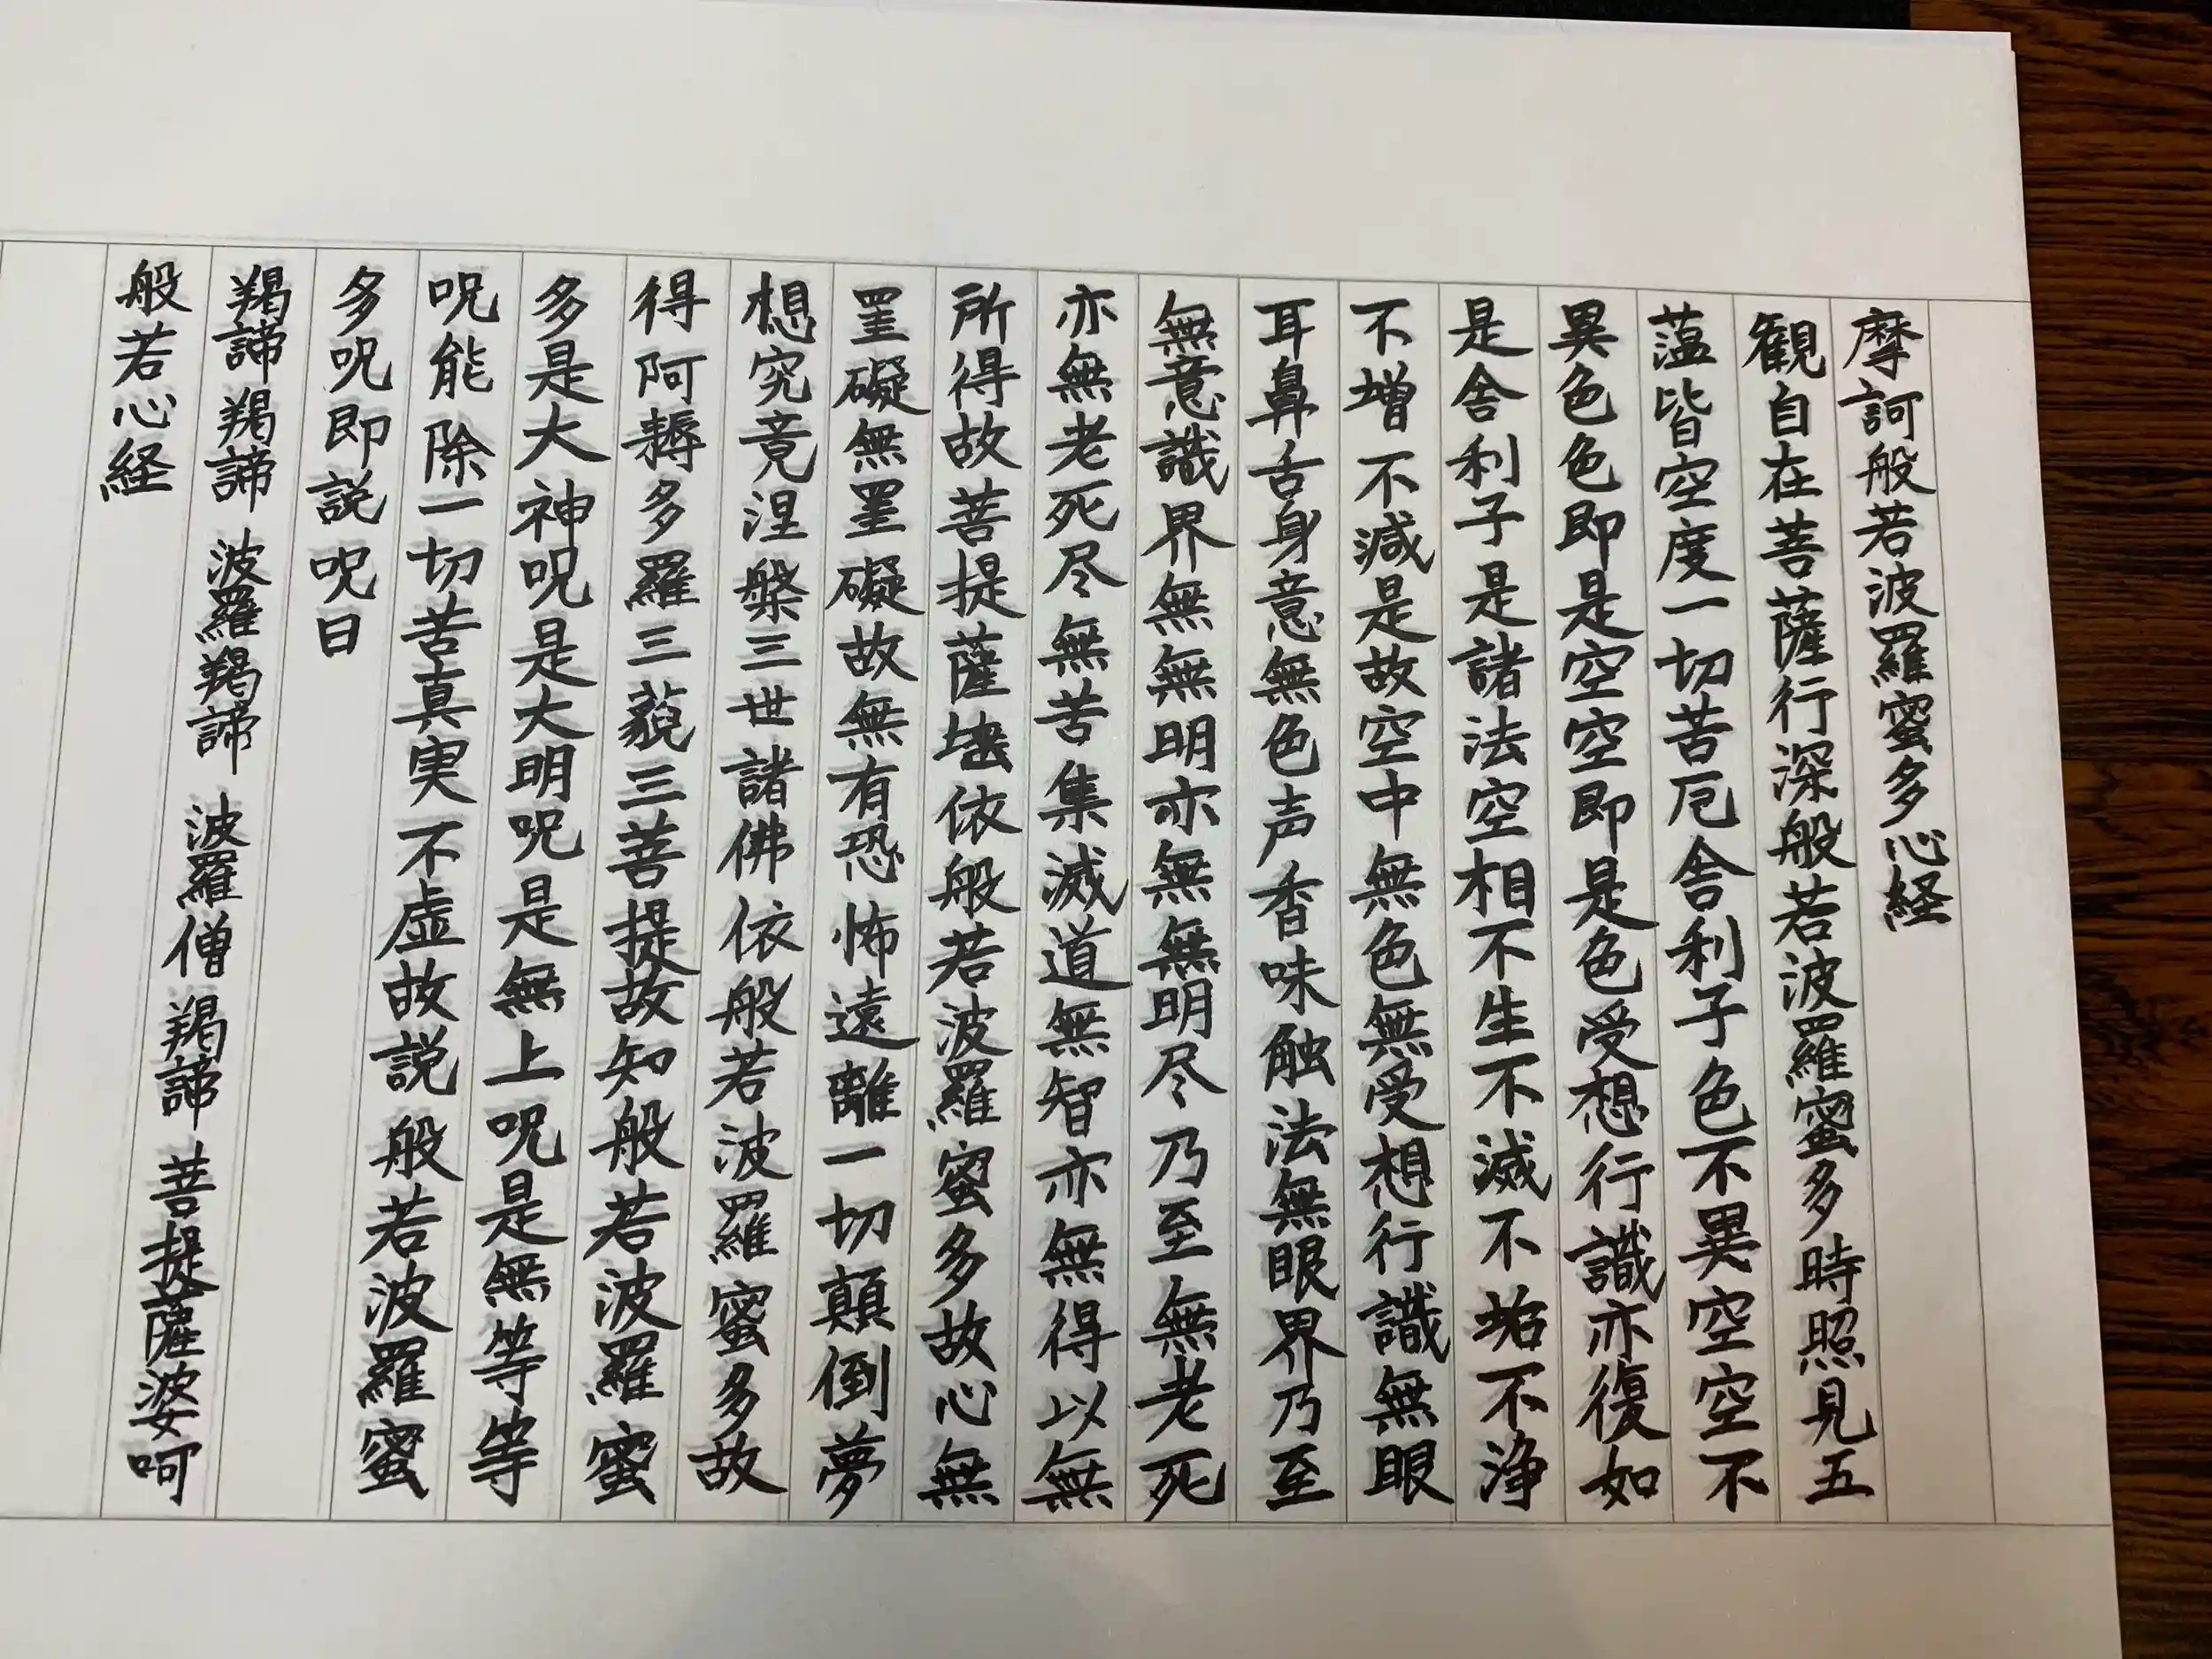 摩訶般若波羅蜜多心経
観自在菩薩行深般若波羅蜜多時照見五
蘊皆空度一切苦厄舎利子色不異空空不
異色色即是空空即是色受想行識亦復如
是舎利子是諸法空相不生不滅不垢不浄
不増不減是故空中無色無受想行識無眼
耳鼻舌身意無色声香味触法無眼界乃至
無意識界無無明亦無無明尽乃至無老死
亦無老死尽無苦集滅道無智亦無得以無
所得故菩提薩埵依般若波羅蜜多故心無
罣礙無罣礙故無有恐怖遠離一切顛倒夢
想究竟涅槃三世諸佛依般若波羅蜜多故
得阿耨多羅三藐三菩提故知般若波羅蜜
多是大神呪是大明呪是無上呪是無等等
呪能除一切苦真実不虚故説般若波羅蜜
多呪即説呪曰
羯諦羯諦 波羅羯諦 波羅僧羯諦 菩提薩婆呵
般若心経